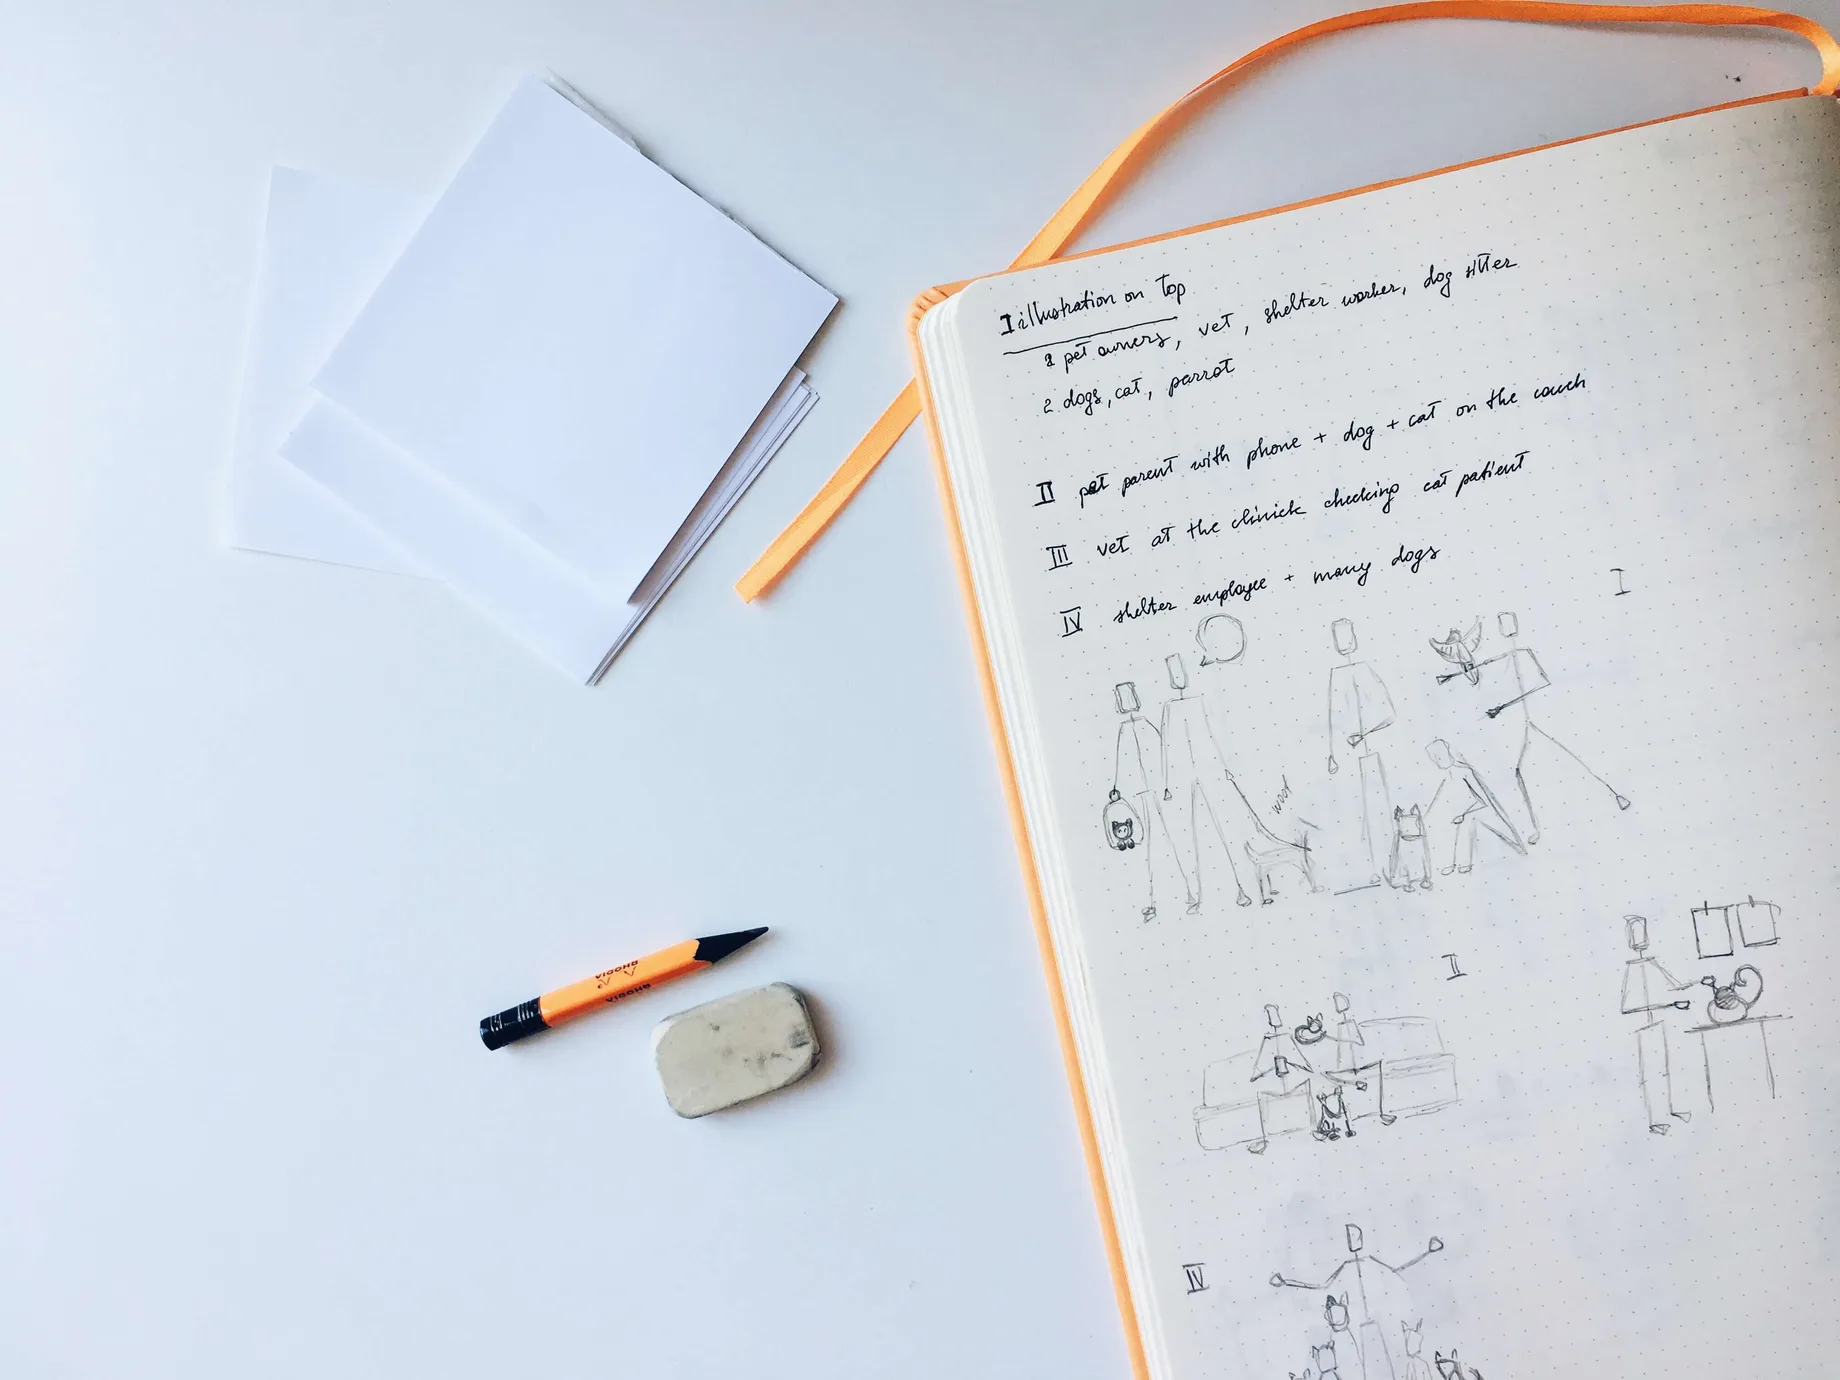 I illustration on top
2 pet owners, vet, shelter worker, dog sitter
2 dogs, cat, parrot
II pet parent with phone + dog + cat on the couch
III vet at the clinick checking cat patient
IV shelter employee + many dogs
I
woof
II
IV
RHODIA
RHODIA